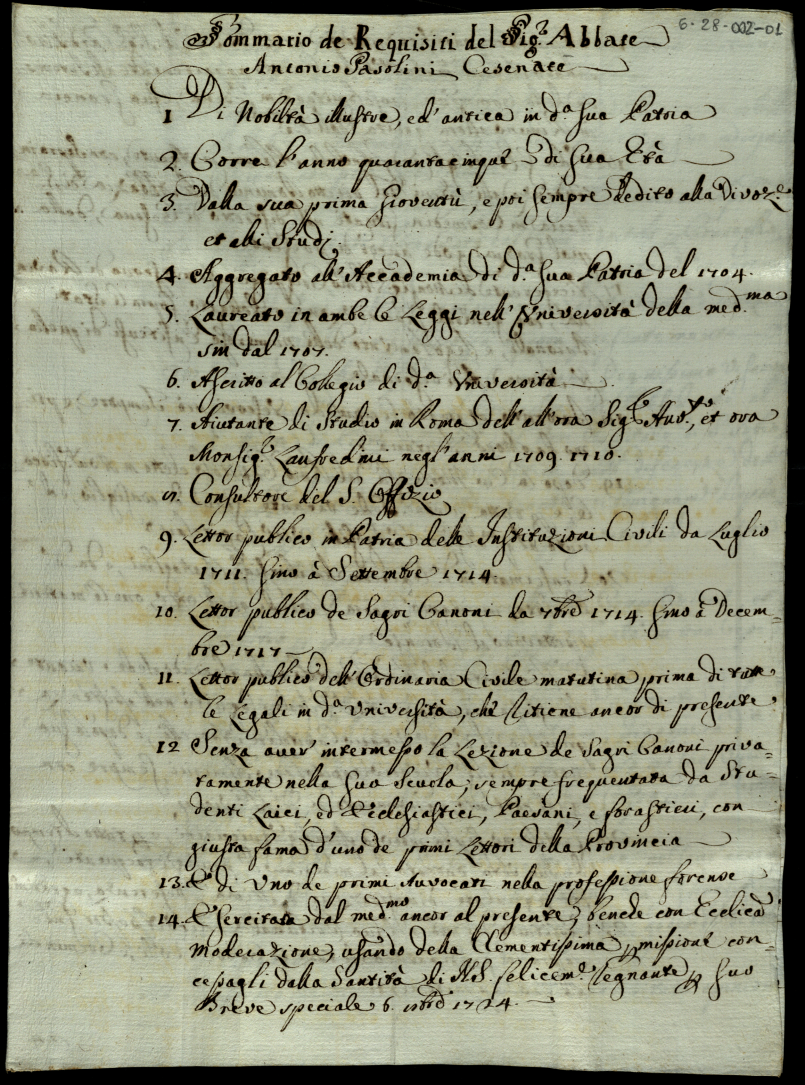 6-28-002-01
Sommario de Requisiti del Sig.r Abbate
Antonio Pasolini Cesenate
1 Di Nobiltà illustre, ed' antica in d.a sua Patria
2. Corre l'anno quarantacinque di sua Età
3. Dalla sua prima Gioventù, e poi sempre dedito alla Divoz.e
et alli Studj.
4. Aggregato all'Accademia di d.a sua Patria del 1704.
5. Laureato in ambe le Leggi nell'Università della med.ma
sin dal 1707.
6. Ascritto al Collegio di d.a Università
7. Aiutante di Studio in Roma dell'all'ora Sig.r Aud.re, et ora
Monsig.r Lanfredini negl'anni 1709. 1710.
8. Consultore del S. Offizio
9. Lettor publico in Patria delle Instituzioni Civili da Luglio
1711. sino à Settembre 1714.
10. Lettor publico de Sagri Canoni da 7bre 1714. sino à Decem=
bre 1717
11. Lettor publico dell'Ordinaria Civile matutina prima di tutte
le Legali in d.a Università, che ritiene ancor di presente
12 Senza aver intermesso la Lezione de Sagri Canoni priva=
tamente nella sua Scuola, sempre frequentata da Stu=
denti Laici, ed Ecclesiastici, Paesani, e forastieri, con
giusta fama d'uno de primi Lettori della Provincia
13. E' di Uno de primi Avvocati nella professione forense
14. Esercitata dal med.mo ancor al presente, benche con Ecclica
Moderazione, usando della Clementissima permissione con=
cessagli dalla Santità di N.S. felicem.e regnante per suo
Breve speciale 6. 1724.